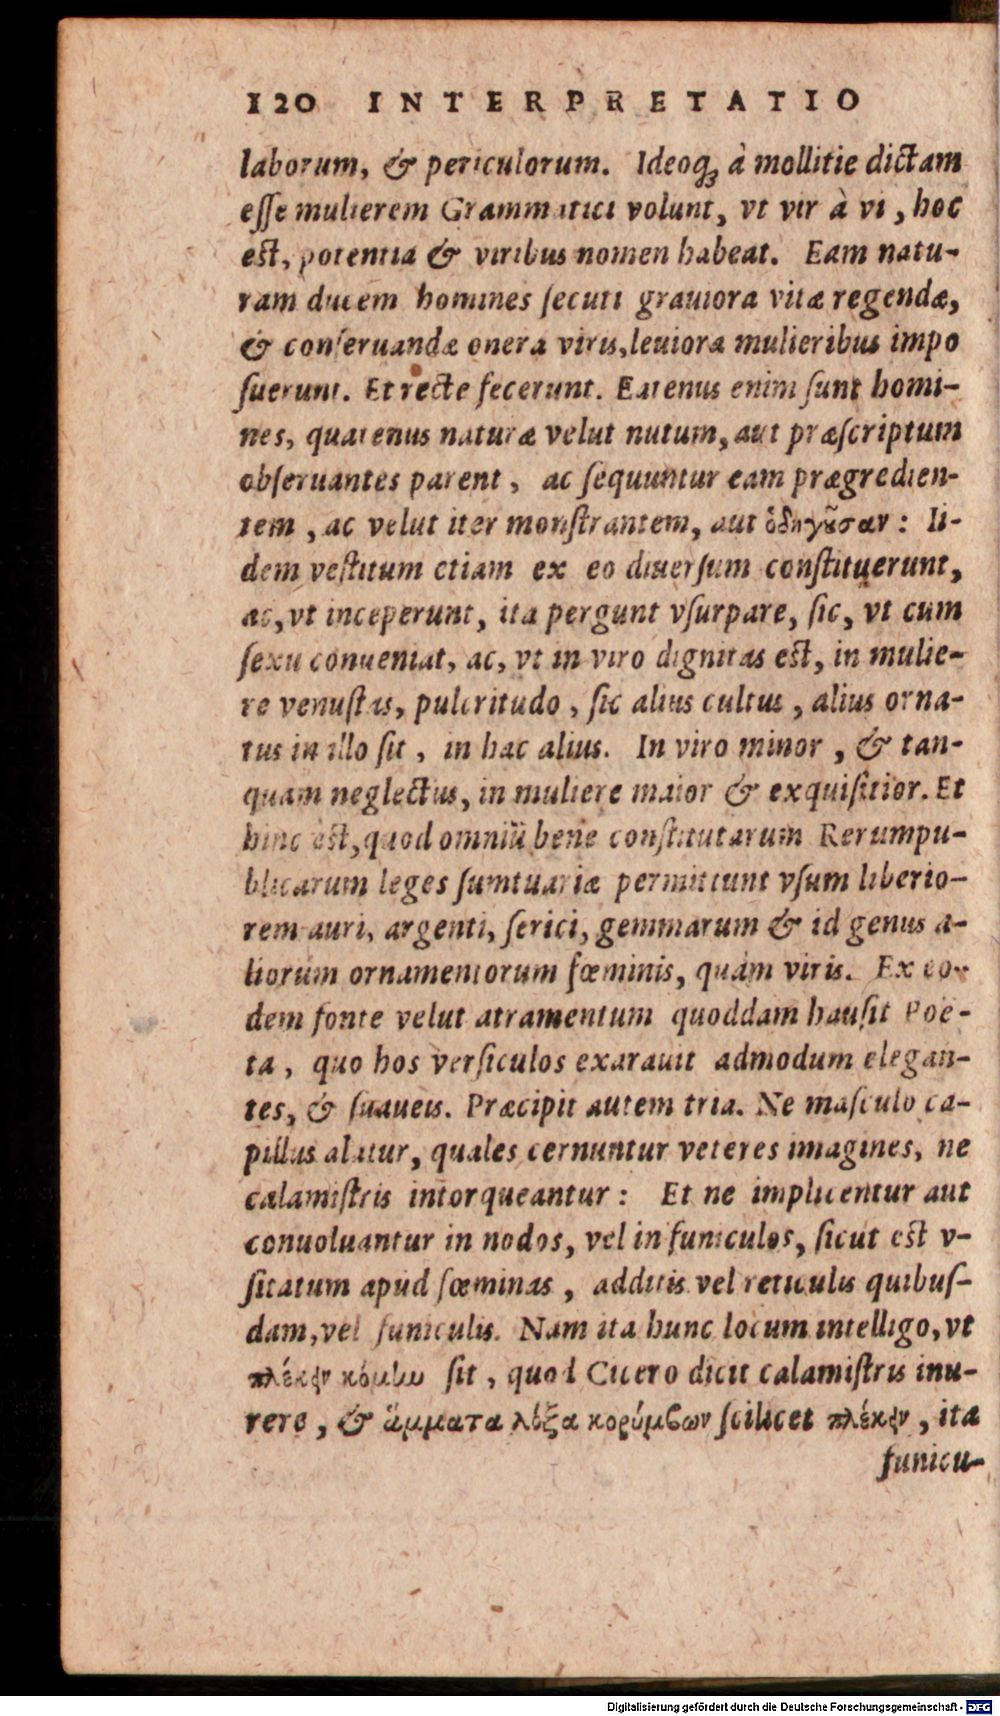 120 INTERPRETATIO
laborum, & periculorum. Ideoq́ꝫ à mollitie dictam
eſſe mulierem Grammatici volunt, vt vir à vi, hoc
eſt, potentia & viribus nomen habeat. Eam natu-
ram ducem homines ſecuti grauiora vitæ regendæ,
& conſeruandæ onera viris, leuiora mulieribus impo
ſuerunt. Et recte fecerunt. Eatenus enim ſunt homi-
nes, quatenus naturæ velut nutum, aut præſcriptum
obſeruantes parent, ac ſequuntur eam prægredien-
tem, ac velut iter monſtrantem, aut ὁδηγοῦσαν: Ii-
dem veſtitum etiam ex eo diuerſum conſtituerunt,
ac, vt inceperunt, ita pergunt vſurpare, ſic, vt cum
ſexu conueniat, ac, vt in viro dignitas eſt, in mulie-
re venuſtas, pulcritudo, ſic alius cultus, alius orna-
tus in illo ſit, in hac alius. In viro minor, & tan-
quam neglectus, in muliere maior & exquiſitior. Et
hinc eſt, quod omniũ bene conſtitutarum Rerumpu-
blicarum leges ſumtuariæ permittunt vſum liberio-
rem auri, argenti, ſerici, gemmarum & id genus a-
liorum ornamentorum fœminis, quàm viris. Ex eo-
dem fonte velut atramentum quoddam hauſit Poë-
ta, quo hos verſiculos exarauit admodum elegan-
tes, & ſuaueis. Præcipit autem tria. Ne maſculo ca-
pillus alatur, quales cernuntur veteres imagines, ne
calamiſtris intorqueantur: Et ne implicentur aut
conuoluantur in nodos, vel in funiculos, ſicut eſt v-
ſitatum apud fœminas, additis vel reticulis quibuſ-
dam, vel funiculis. Nam ita hunc locum intelligo, vt
πλέκειν κόμην ſit, quod Cicero dicit calamiſtris inu-
rere, & ἅμματα λόξα κορύμβων ſcilicet πλέκειν, ita
funicu-
Digitalisierung gefördert durch die Deutsche Forschungsgemeinschaft - DFG